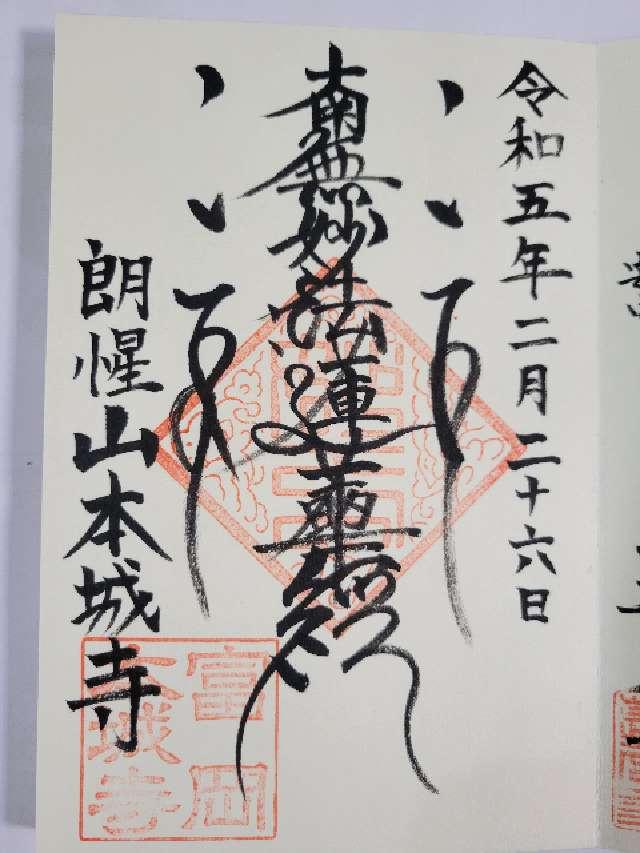 令和五年二月二十六日
南無妙法蓮華経
朗惺山本城寺
富岡
本城寺